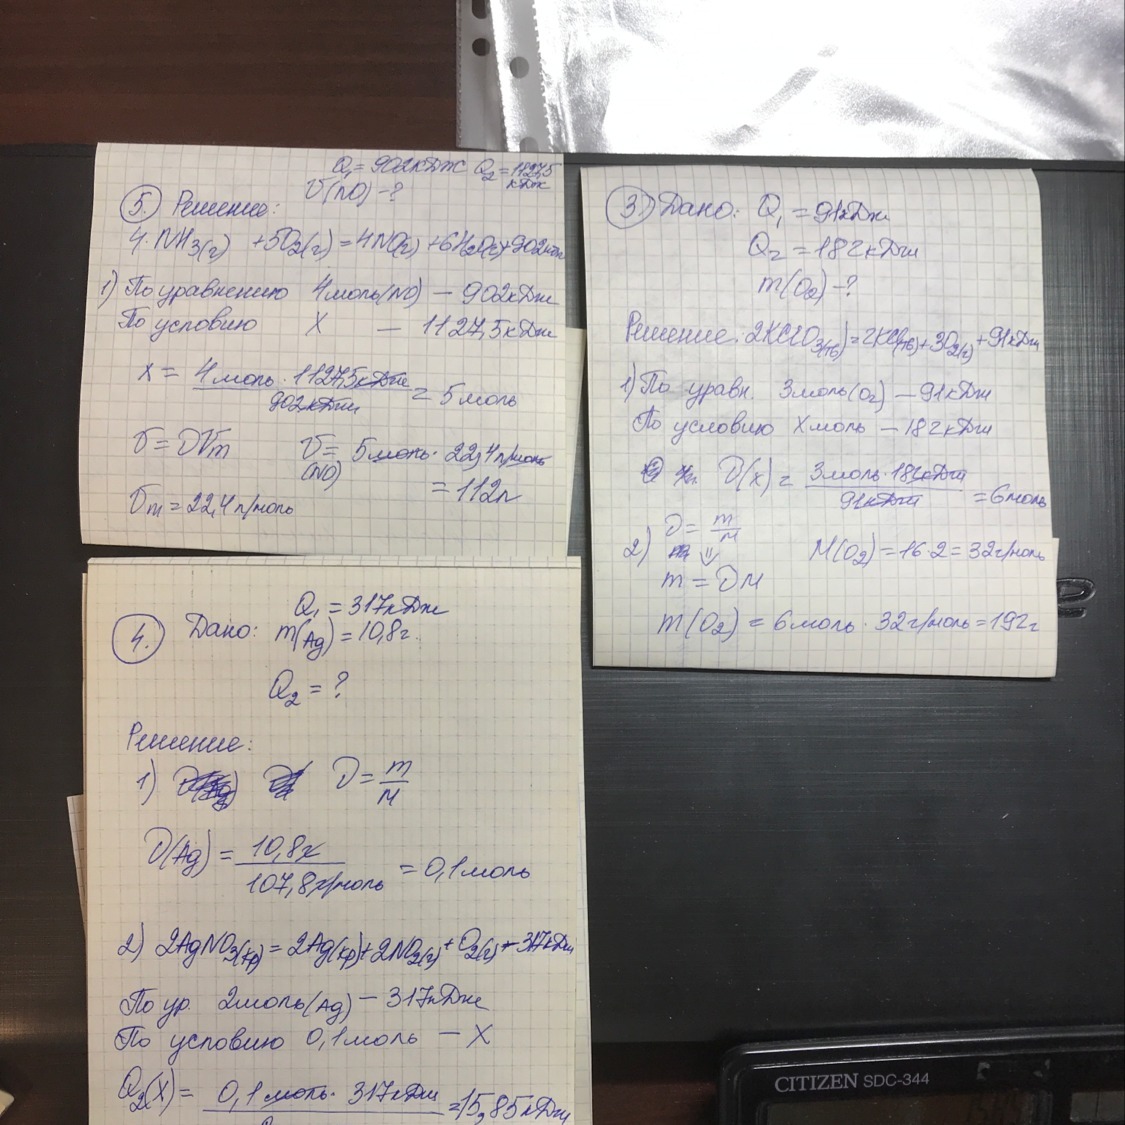 Q₁ = 902кДж Q₂ = 1127,5
кДж
V(NO) - ?
5. Решение:
4·NH₃(г) + 5O₂(г) = 4NO(г) + 6H₂O(г) + 902кДж
1) По уравнению 4моль(NO) — 902кДж
По условию X — 1127,5кДж
x = 4моль·1127,5кДж / 902кДж = 5моль
V = νVm V(NO) = 5моль·22,4л/моль
= 112л
Vm = 22,4л/моль
3. Дано: Q₁ = 91кДж
Q₂ = 182кДж
m(O₂) - ?
Решение: 2KClO₃(тв) = 2KCl(тв) + 3O₂(г) + 91кДж
1) По уравн. 3моль(O₂) — 91кДж
По условию Xмоль — 182кДж
ν(x) = 3моль·182кДж / 91кДж = 6моль
2) ν = m/M
⇓
m = νM
M(O₂) = 16·2 = 32г/моль
m(O₂) = 6моль·32г/моль = 192г
4. Дано: Q₁ = 317кДж
m(Ag) = 10,8г
Q₂ = ?
Решение:
1) ν = m/M
ν(Ag) = 10,8г / 107,8г/моль = 0,1моль
2) 2AgNO₃(кр) = 2Ag(кр) + 2NO₂(г) + O₂(г) - 317кДж
По ур. 2моль(Ag) — 317кДж
По условию 0,1моль — X
Q₂(X) = 0,1моль·317кДж = 15,85кДж
CITIZEN SDC-344